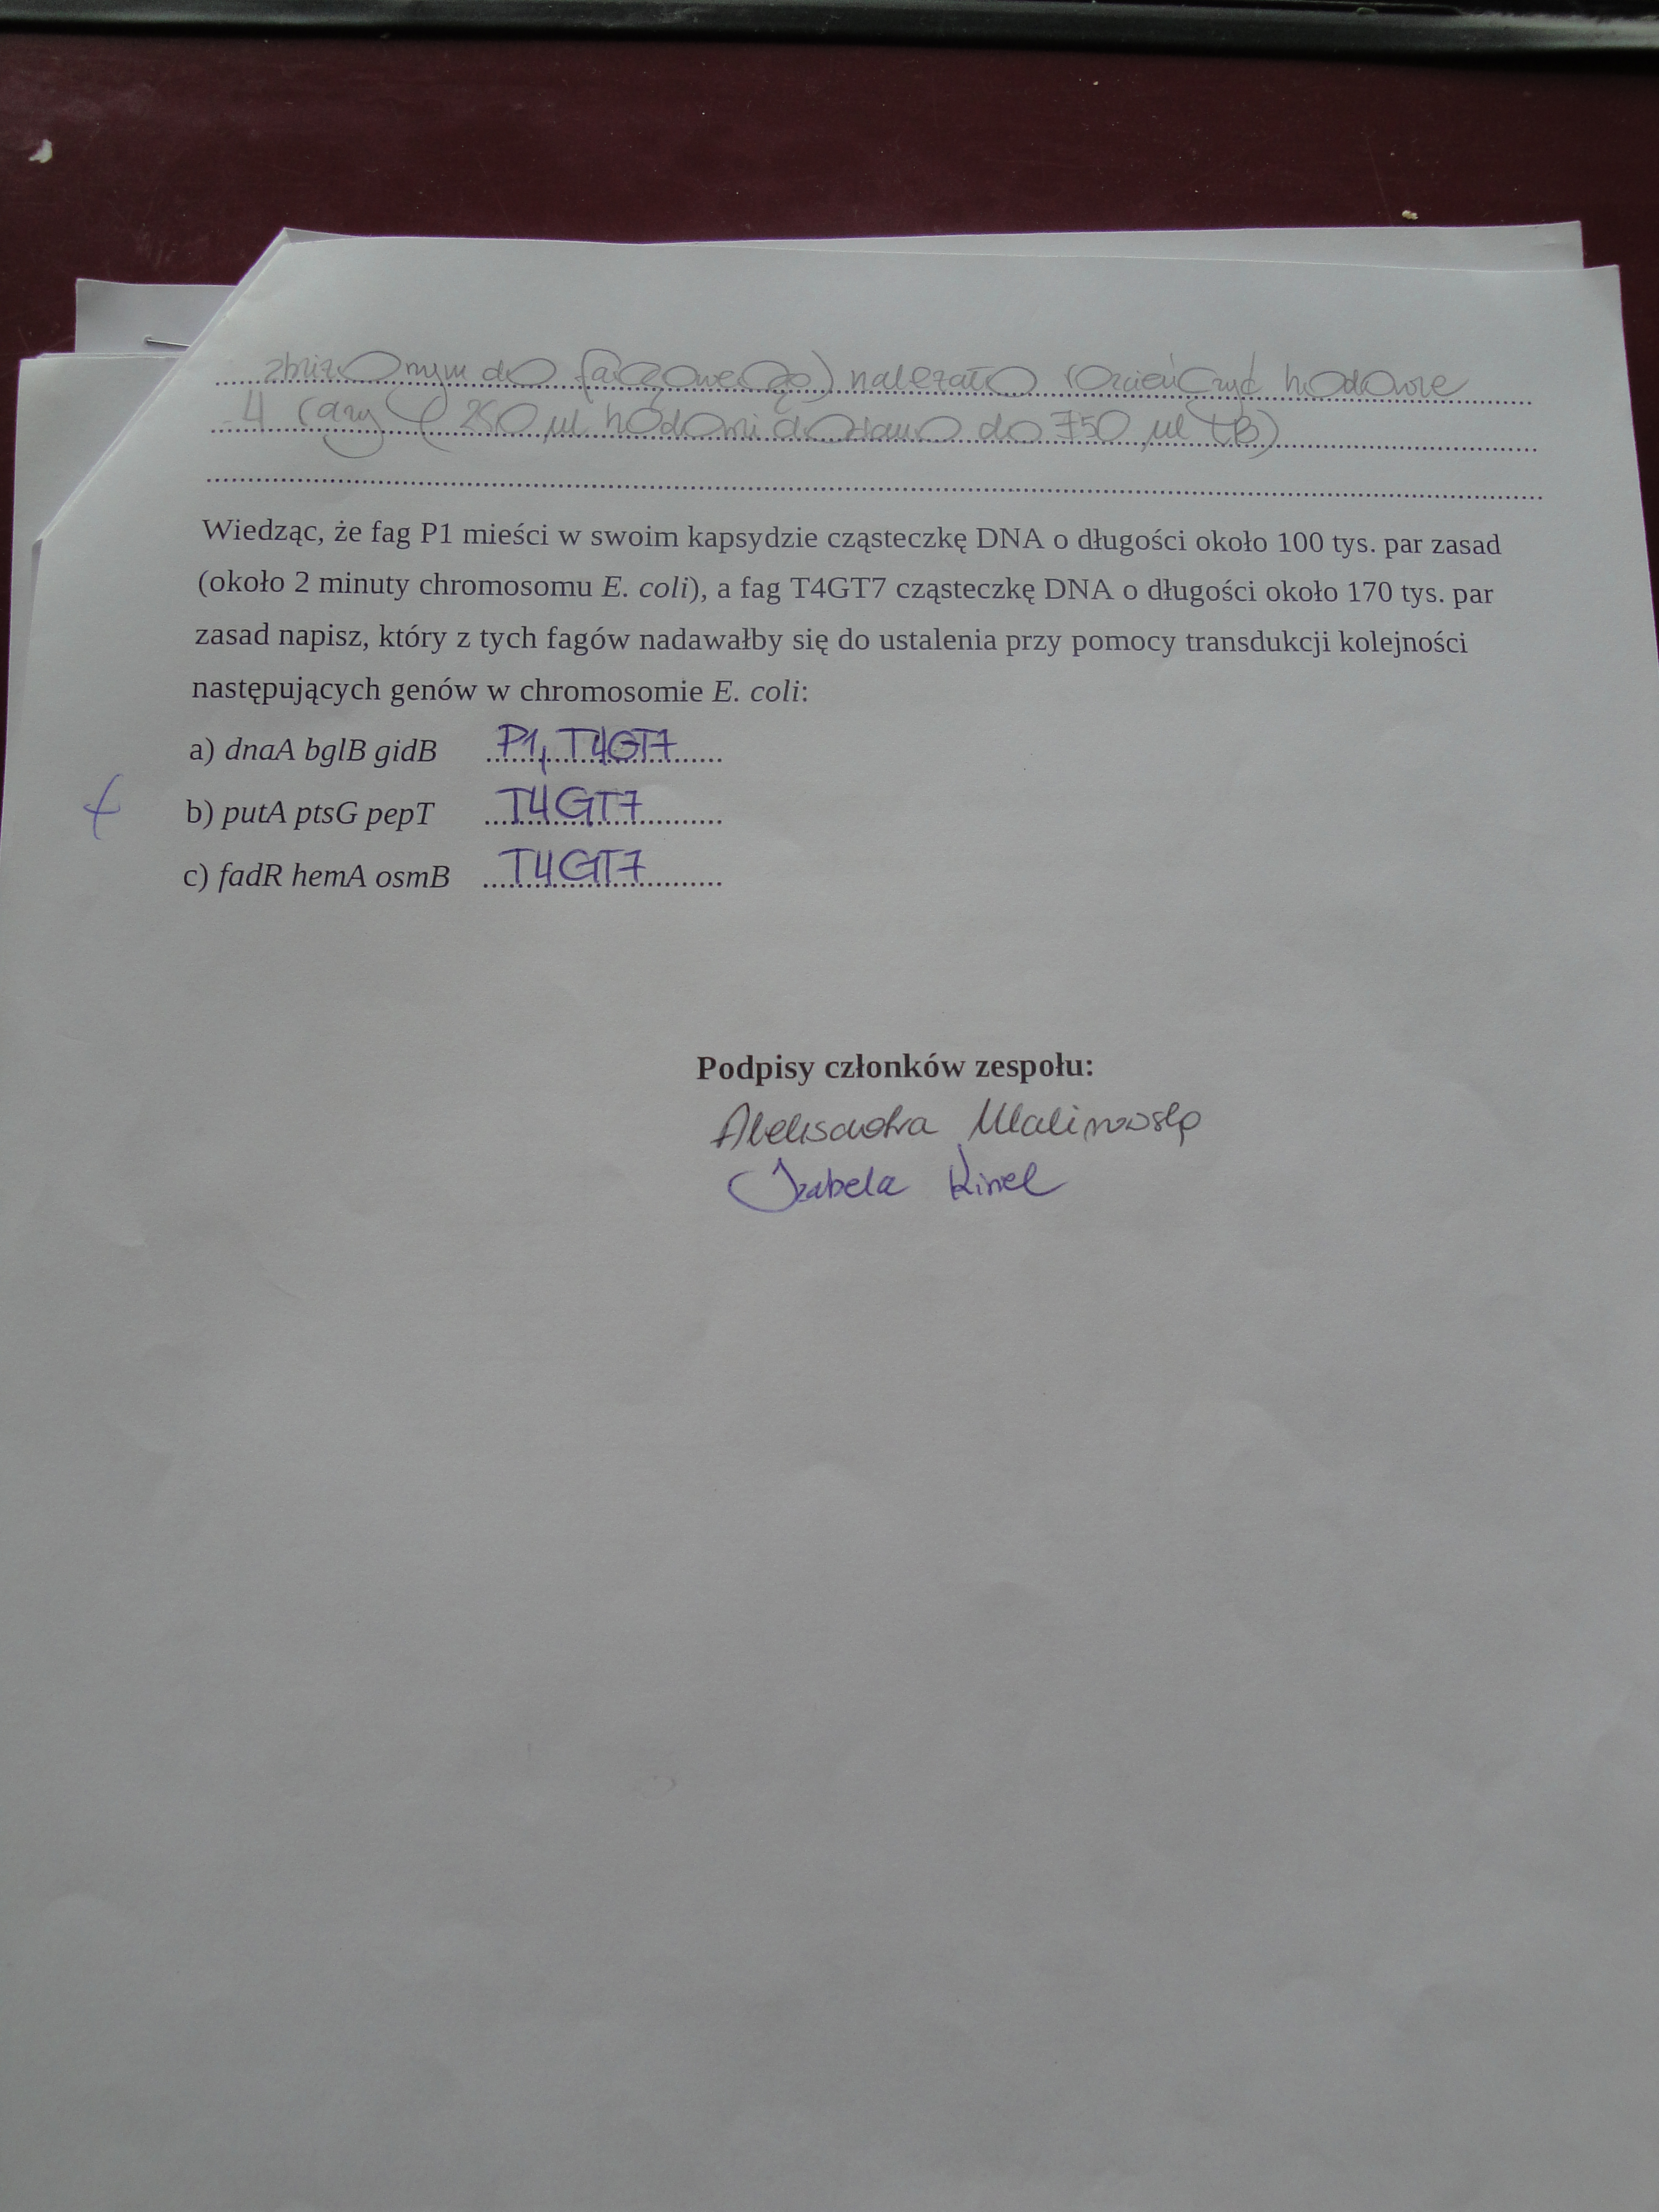 zbliżonym do fagowego) należało rozcieńczyć hodowle
4 razy (250 µl hodowli dodano do 750 µl TB)
Wiedząc, że fag P1 mieści w swoim kapsydzie cząsteczkę DNA o długości około 100 tys. par zasad
(około 2 minuty chromosomu E. coli), a fag T4GT7 cząsteczkę DNA o długości około 170 tys. par
zasad napisz, który z tych fagów nadawałby się do ustalenia przy pomocy transdukcji kolejności
następujących genów w chromosomie E. coli:
a) dnaA bglB gidB P1, T4GT7
+ b) putA ptsG pepT T4GT7
c) fadR hemA osmB T4GT7
Podpisy członków zespołu:
Aleksandra Malinowska
Izabela Kinel